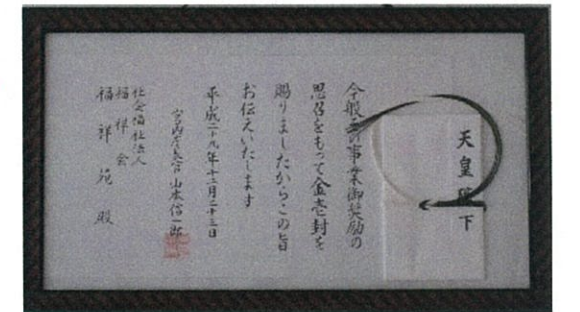 天皇陛下
今般その事業御奨励の
思召をもって金壱封を
賜りましたからこの旨
お伝えいたします
平成二十九年十二月二十三日
宮内庁長官 山本信一郎
社会福祉法人
福祥会
福祥苑 殿